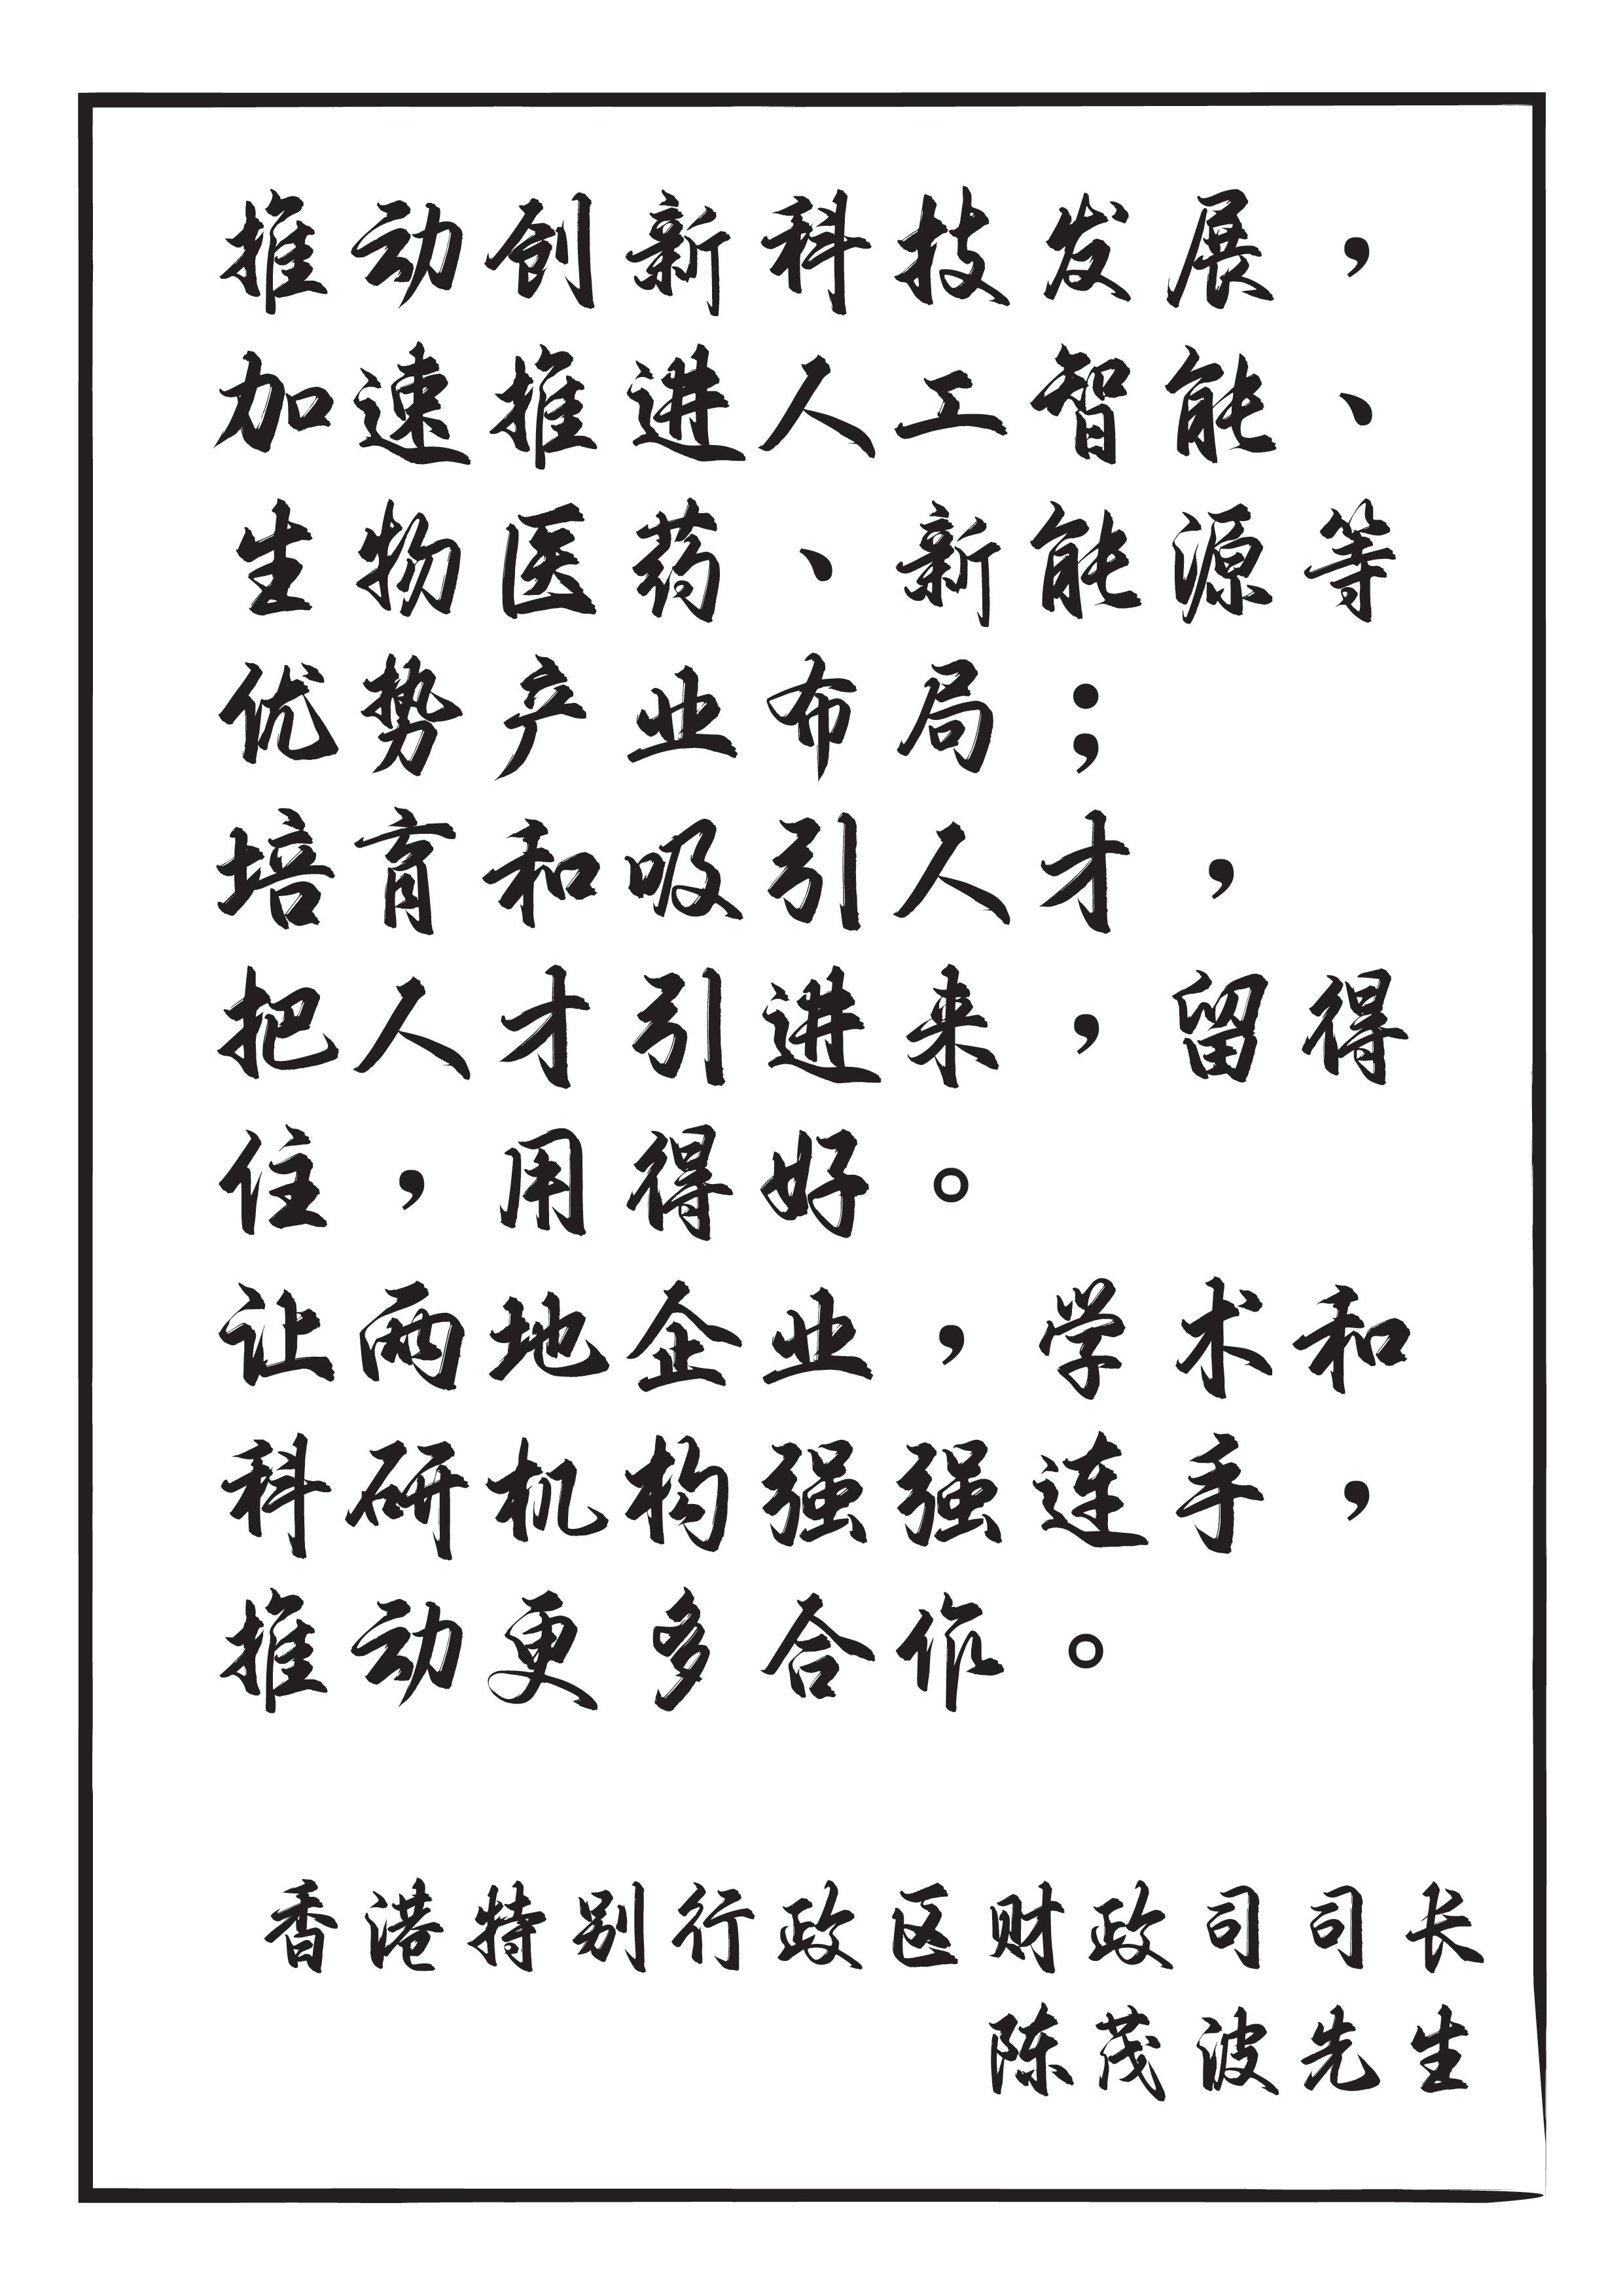 推动创新科技发展，
加速推进人工智能、
生物医药、新能源等
优势产业布局；
培育和吸引人才，
把人才引进来，留得
住，用得好。
让两地企业，学术和
科研机构强强连手，
推动更多合作。
香港特别行政区财政司司长
陈茂波先生